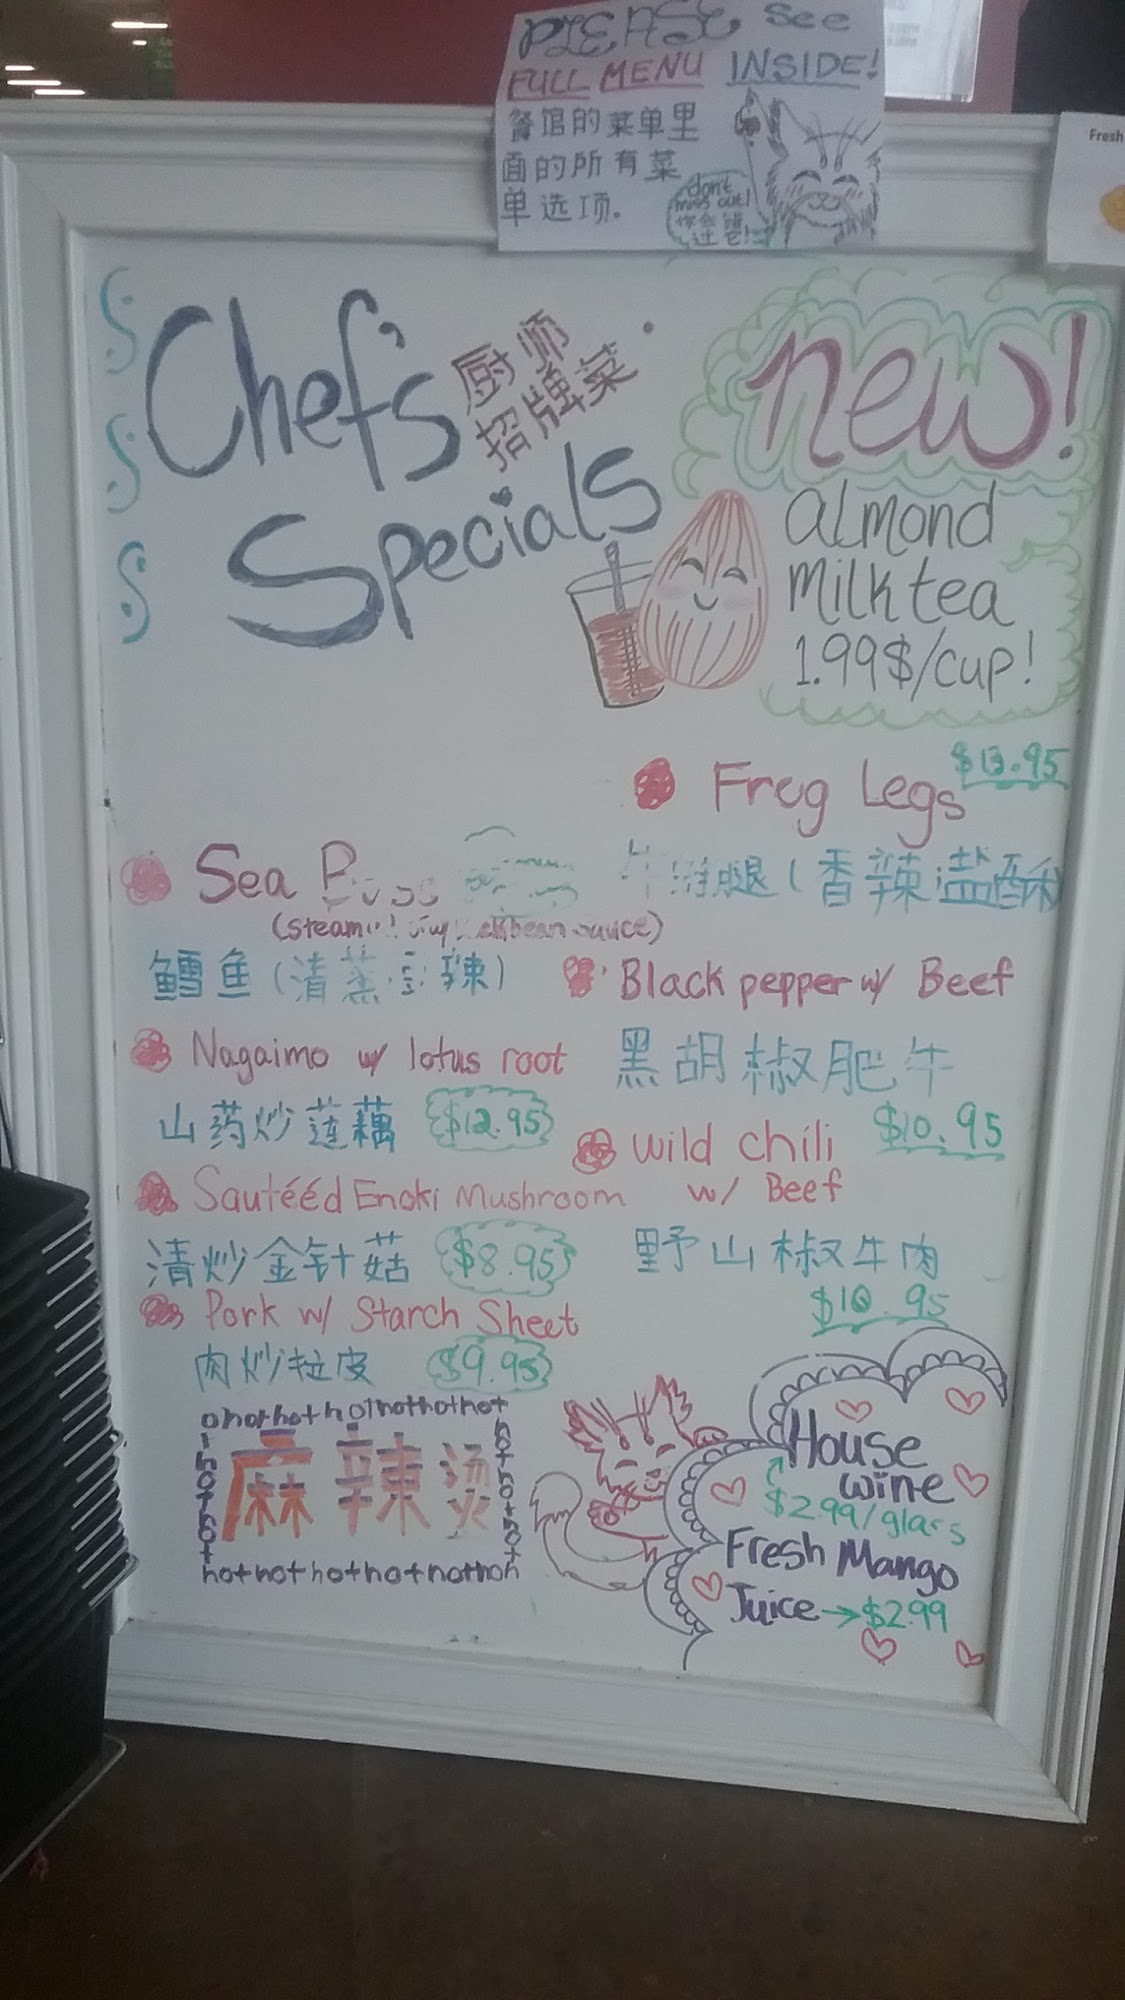 PLEASE See
FULL MENU INSIDE!
餐馆的菜单里
面的所有菜
单选项。
don't
miss out!
你会错
过它!
Fresh
Chef's
厨师
招牌菜
Specials
new!
almond
milk tea
1.99$/cup!
Frog Legs $13.95
牛 腿(香辣盐酥
Sea
(steam bean sauce)
鳕鱼(清蒸 豆辣)
Black pepper w/ Beef
黑胡椒肥牛
$10.95
Nagaimo w/ lotus root
山药炒莲藕 $12.95
wild chili
w/ Beef
野山椒牛肉
$10.95
Sautééd Enoki Mushroom
清炒金针菇 $8.95
Pork w/ Starch Sheet
肉炒拉皮 $9.95
hothothothothothot
麻辣烫
hothothothothothoh
House
wine
$2.99/glass
Fresh Mango
Juice→$2.99